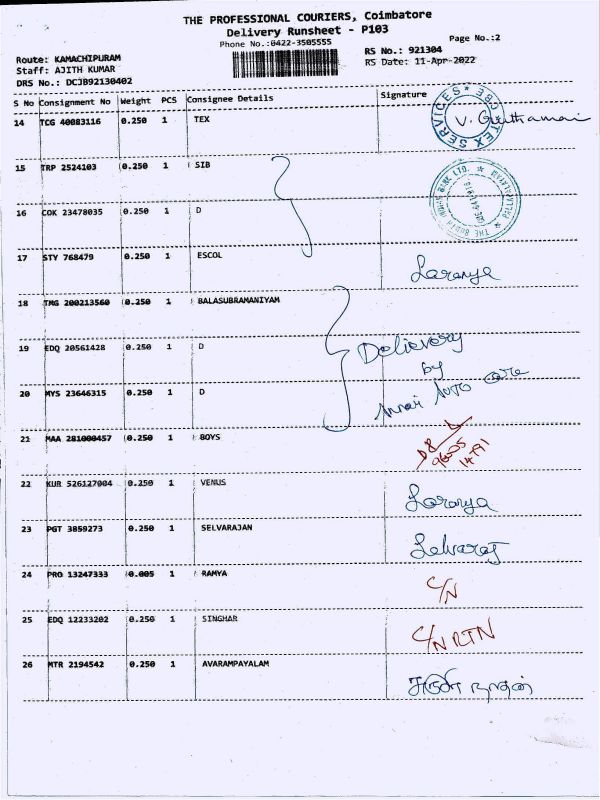 THE PROFESSIONAL COURIERS, Coimbatore
Delivery Runsheet - P103
Phone No.:0422-3505555
Page No.:2
Route: KAMACHIPURAM
RS No.: 921304
Staff: AJITH KUMAR
RS Date: 11-Apr-2022
DRS No.: DCJB92130402
S No Consignment No Weight PCS Consignee Details Signature
14 TCG 40083116 0.250 1 TEX
SERVICES * CBE * TEX
15 TRP 2524103 0.250 1 SIB
THE SOUTH INDIAN BANK LTD.
16 COK 23478035 0.250 1 D
17 STY 768479 0.250 1 ESCOL Saranya
18 TMG 200213560 0.250 1 BALASUBRAMANIYAM
19 EDQ 20561428 0.250 1 D Delievery
by
20 MYS 23646315 0.250 1 D Annai Auto care
21 MAA 281000457 0.250 1 BOYS
22 KUR 526127004 0.250 1 VENUS Saranya
23 PGT 3859273 0.250 1 SELVARAJAN Selvaraj
24 PRO 13247333 0.005 1 RAMYA C/N
25 EDQ 12233202 0.250 1 SINGHAR C/N RTN
26 MTR 2194542 0.250 1 AVARAMPAYALAM